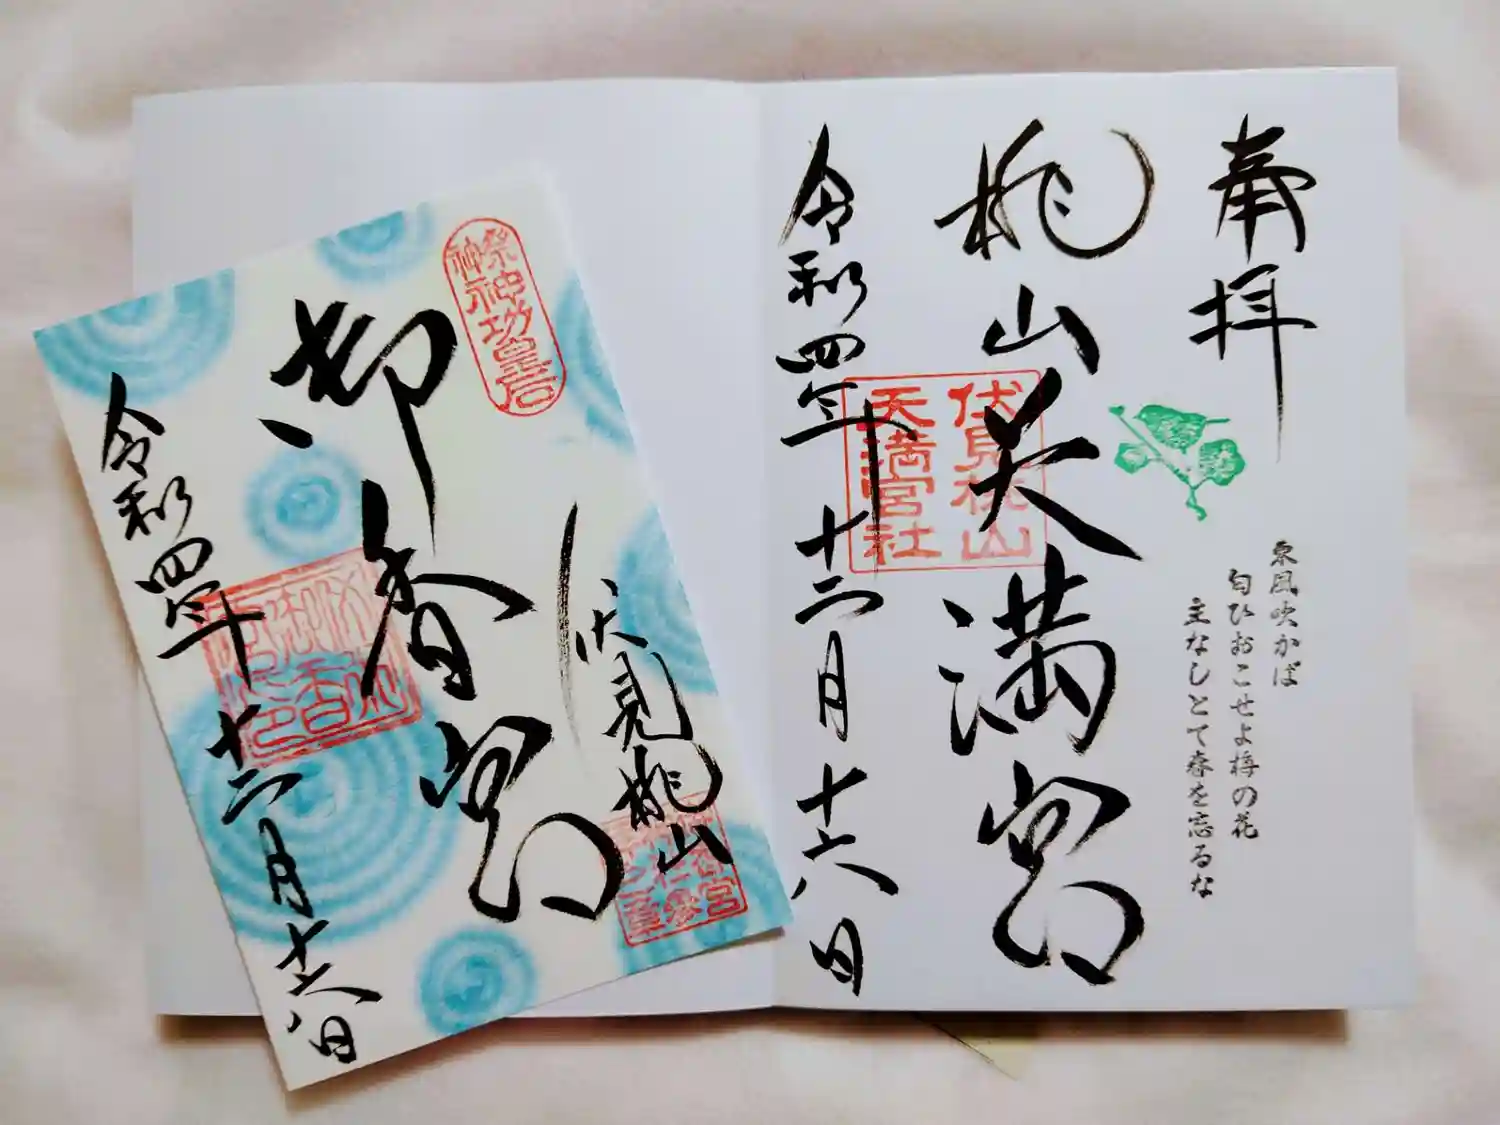 奉拝
桃山天満宮
伏見桃山
天満宮社
令和四年十二月十八日
東風吹かば
匂ひおこせよ梅の花
主なしとて春を忘るな
祭神神功皇后
伏見桃山
御香宮
令和四年十二月十八日